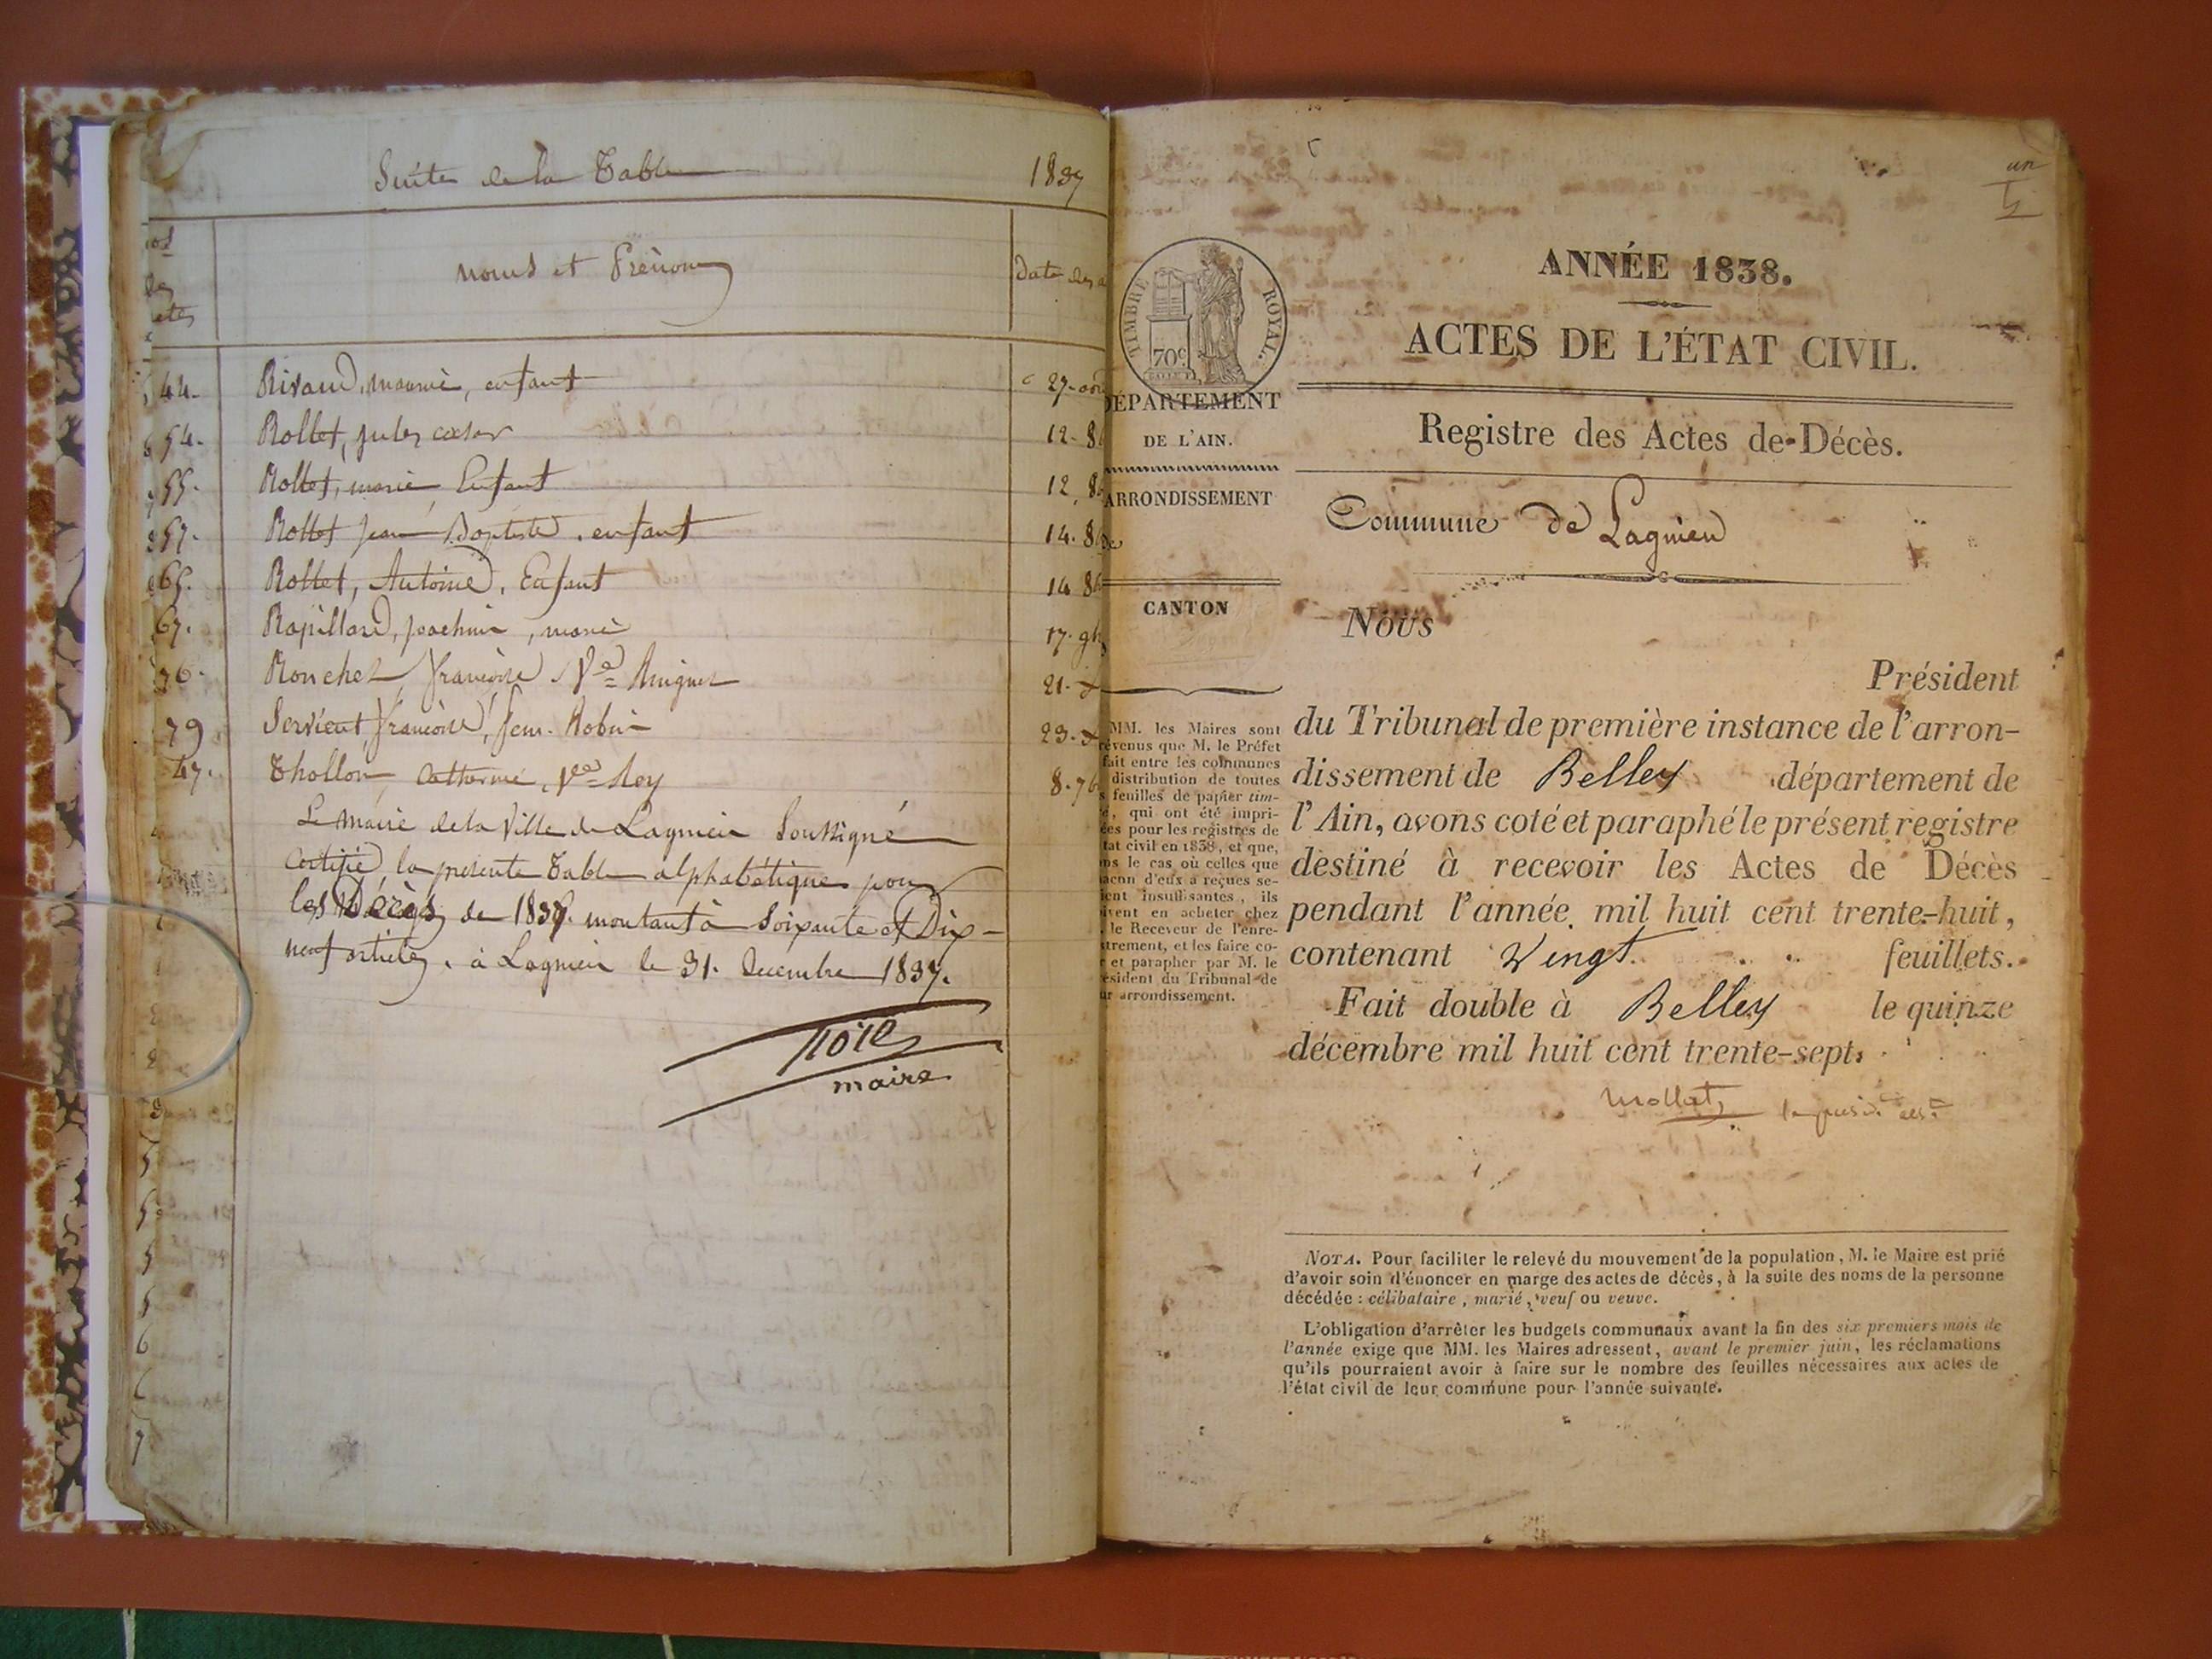 Suite de la Table 1837
noms et Prénoms
Date des
44. Rivaud, enfant 27. aou
54. Rollet, jules cæsar 12. 8
55. Rollet, marie Enfant 12, 8
57. Rollet jean Baptiste, enfant 14. 8
65. Rollet, Antoine, Enfant 14 8
67. Rapillard, joachim, marié 17. 9b
76. Ronchet, françoise Vve 21.
79 Servient, françoise, fem. Robin 23.
47. Thollon, Catherine, Vve Rey 8. 7b
Le Maire de la Ville de Lagnieu Soussigné
certifie, la presente Table alphabétique pour
les Décès de 1837. montant à Soixante et Dix-
neuf articles. à Lagnieu le 31. Decembre 1837.
maire
un
TIMBRE ROYAL.
70c
DÉPARTEMENT
DE L'AIN.
ARRONDISSEMENT
de
CANTON
MM. les Maires sont
évenus que M. le Préfet
fait entre les communes
distribution de toutes
s feuilles de papier tim-
é, qui ont été impri-
ées pour les registres de
tat civil en 1838, et que,
ns le cas où celles que
acun d'eux a reçues se-
ient insuffisantes, ils
ivent en acheter chez
. le Receveur de l'enre-
trement, et les faire co-
r et parapher par M. le
ésident du Tribunal de
ur arrondissement.
ANNÉE 1838.
ACTES DE L'ÉTAT CIVIL.
Registre des Actes de Décès.
Commune de Lagnieu
Nous
Président
du Tribunal de première instance de l'arron-
dissement de Belley département de
l'Ain, avons coté et paraphé le présent registre
destiné à recevoir les Actes de Décès
pendant l'année mil huit cent trente-huit,
contenant Vingt feuillets.
Fait double à Belley le quinze
décembre mil huit cent trente-sept.
Mollet
NOTA. Pour faciliter le relevé du mouvement de la population, M. le Maire est prié
d'avoir soin d'énoncer en marge des actes de décès, à la suite des noms de la personne
décédée : célibataire, marié, veuf ou veuve.
L'obligation d'arrêter les budgets communaux avant la fin des six premiers mois de
l'année exige que MM. les Maires adressent, avant le premier juin, les réclamations
qu'ils pourraient avoir à faire sur le nombre des feuilles nécessaires aux actes de
l'état civil de leur commune pour l'année suivante.